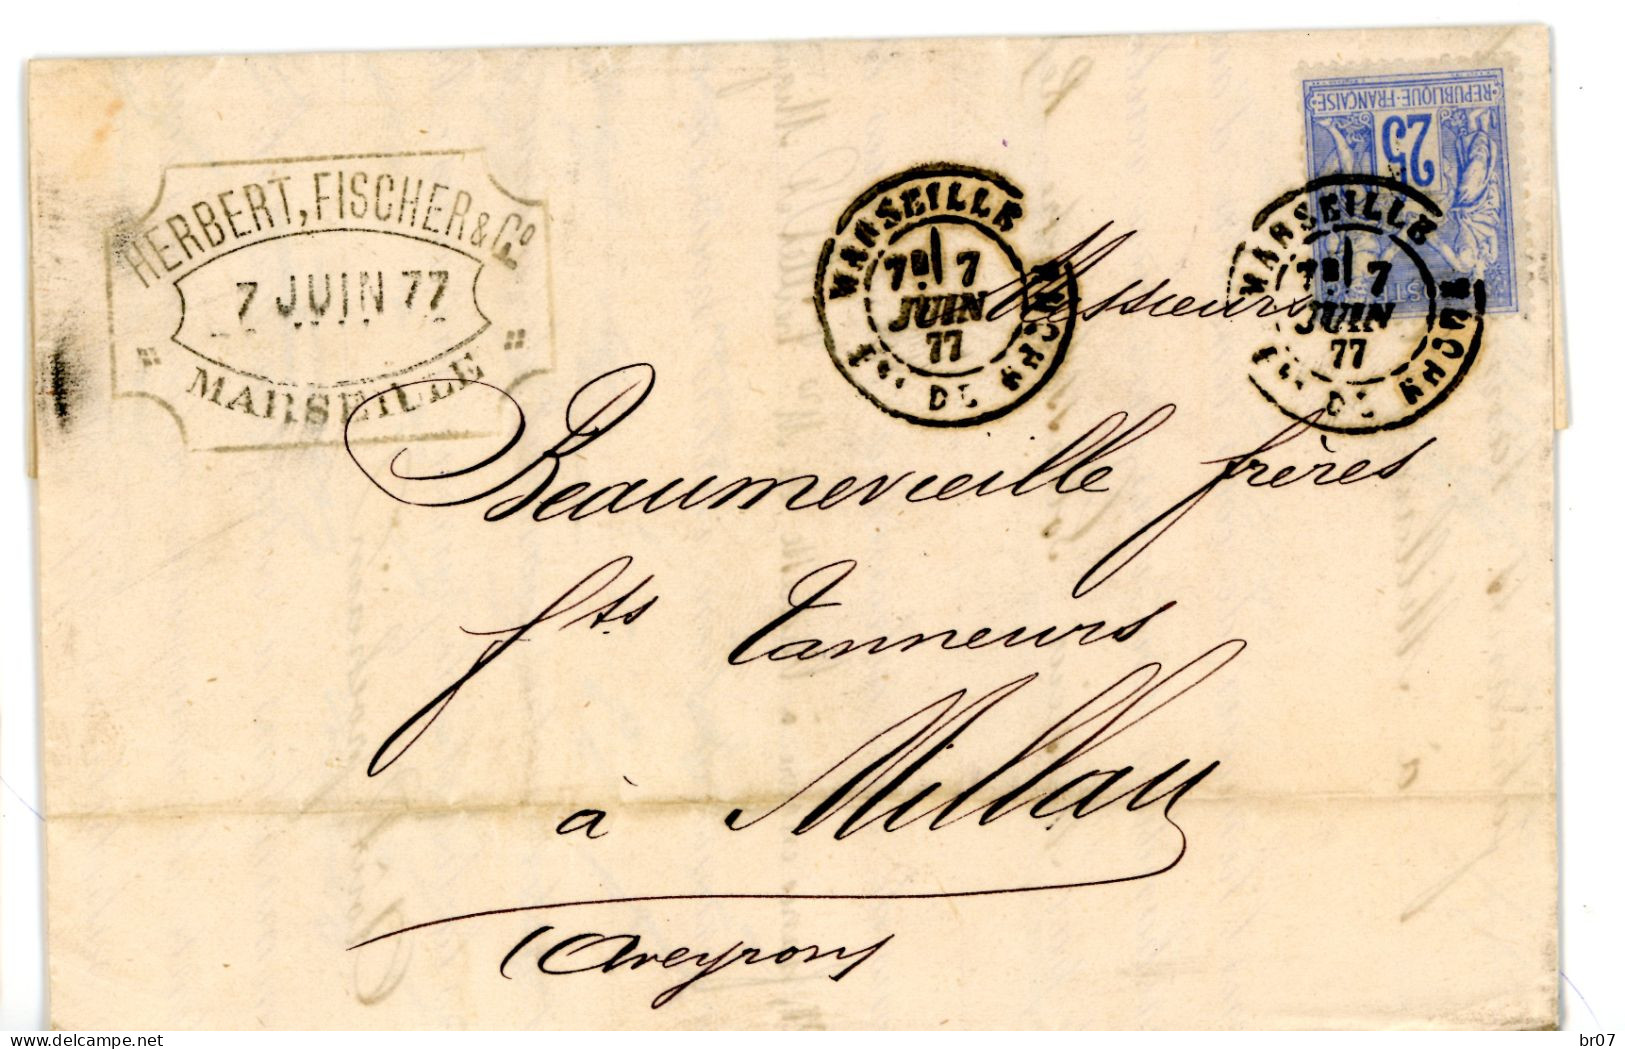 HERBERT, FISCHER & Cº.
7 JUIN 77
MARSEILLE
REPUBLIQUE-FRANÇAISE
25
MARSEILLE
7
7
JUIN
77
Bes. DE RHONE
MARSEILLE
7
7
JUIN
77
Bes. DE RHONE
Messieurs
Beaumevieille frères
fts Tanneurs
à Millau
(Aveyron)
delcampe.net
br07